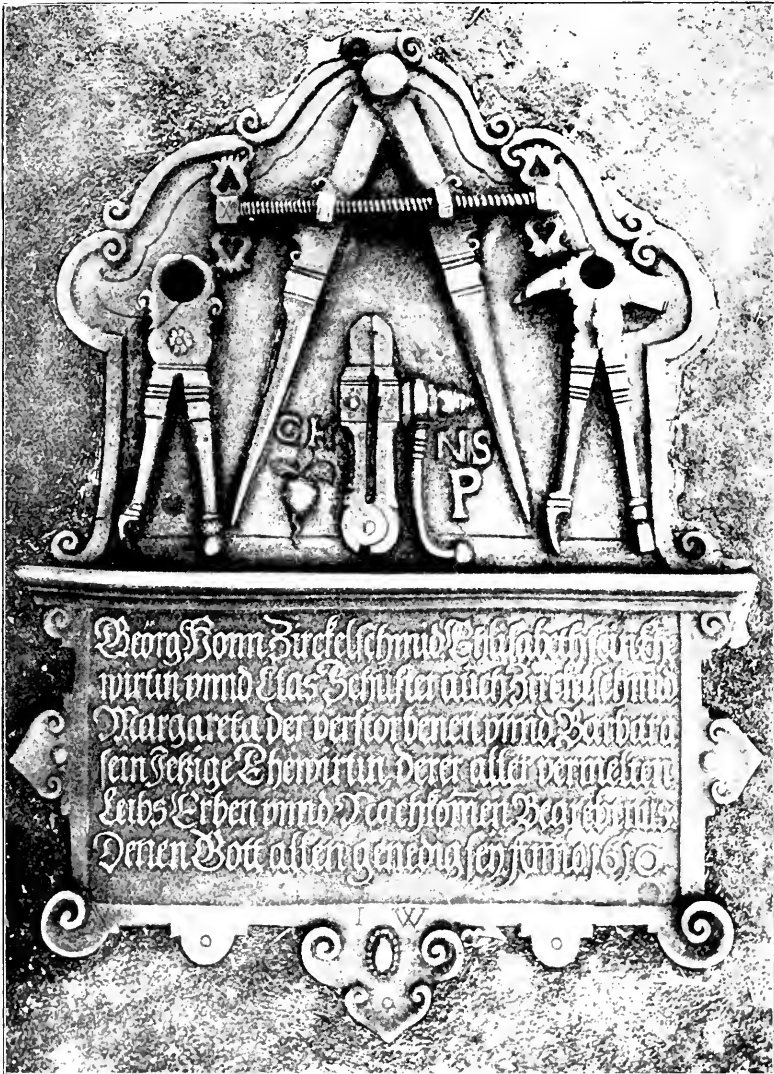 G H
NS
P
Geörg Honn Zirckelschmid Ehlisabeth sein Eh
wirtin vnnd Clas Schuster auch Zirckelschmid
Margareta der verstorbenen vnnd Barbara
sein Jetzige Ehewirtin, derer aller vermelten
Leibs Erben vnnd Nachkom̄en Begrebtnus.
Denen Gott allen genedig sey Anno 1616.
I W